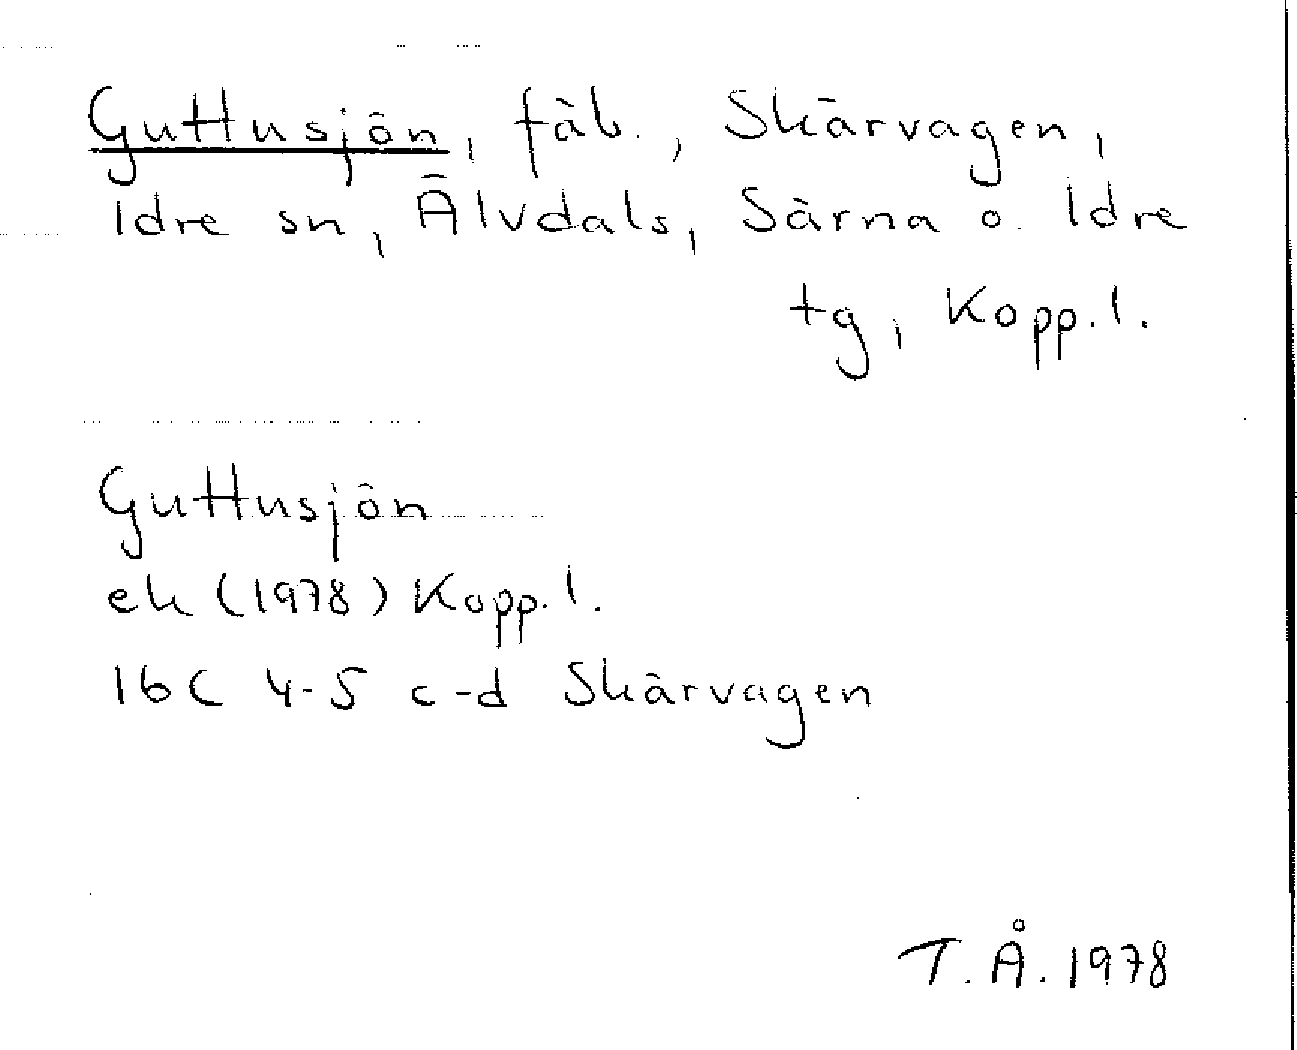 Guttusjön, fäb., Skärvagen,
Idre sn, Älvdals, Särna o. Idre
tg, Kopp.l.
Guttusjön
ek (1978) Kopp.l.
16C 4-5 c-d Skärvagen
T.Å.1978